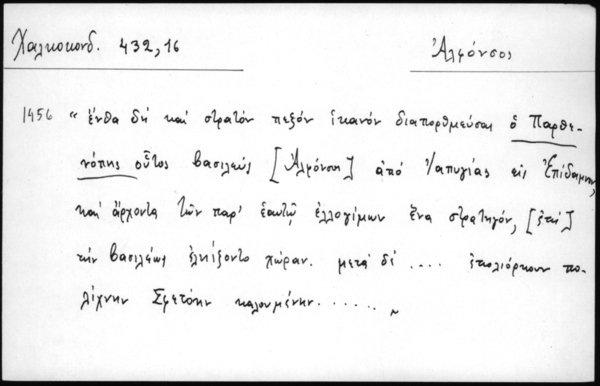 Χαλκοκονδ. 432,16
Ἀλφόνσος
1456 "ἔνθα δὴ καὶ στρατὸν πεζὸν ἱκανὸν διαπορθμεύσας ὁ Παρθε-
νόπης οὗτος βασιλεὺς [Ἀλφόνσος] ἀπὸ Ἰαπυγίας εἰς Ἐπίδαμνον,
καὶ ἄρχοντα τῶν παρ' ἑαυτῷ ἐλλογίμων ἕνα στρατηγόν,
τὴν βασιλέως ἐληίζοντο χώραν. μετὰ δὲ .... ἐπολιόρκουν πο-
λίχνην Σφετόην καλουμένην......"